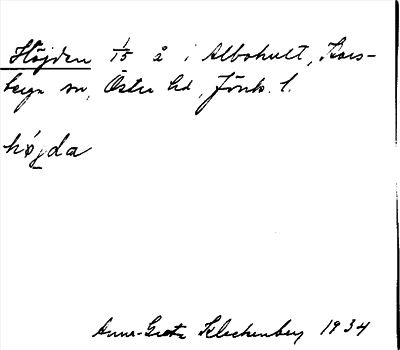 Höjden 1/15 å i Albohult, Kors-
berga sn, Östra hd, Jönk. l.
höjda
Anna-Greta Kleckenberg 1934